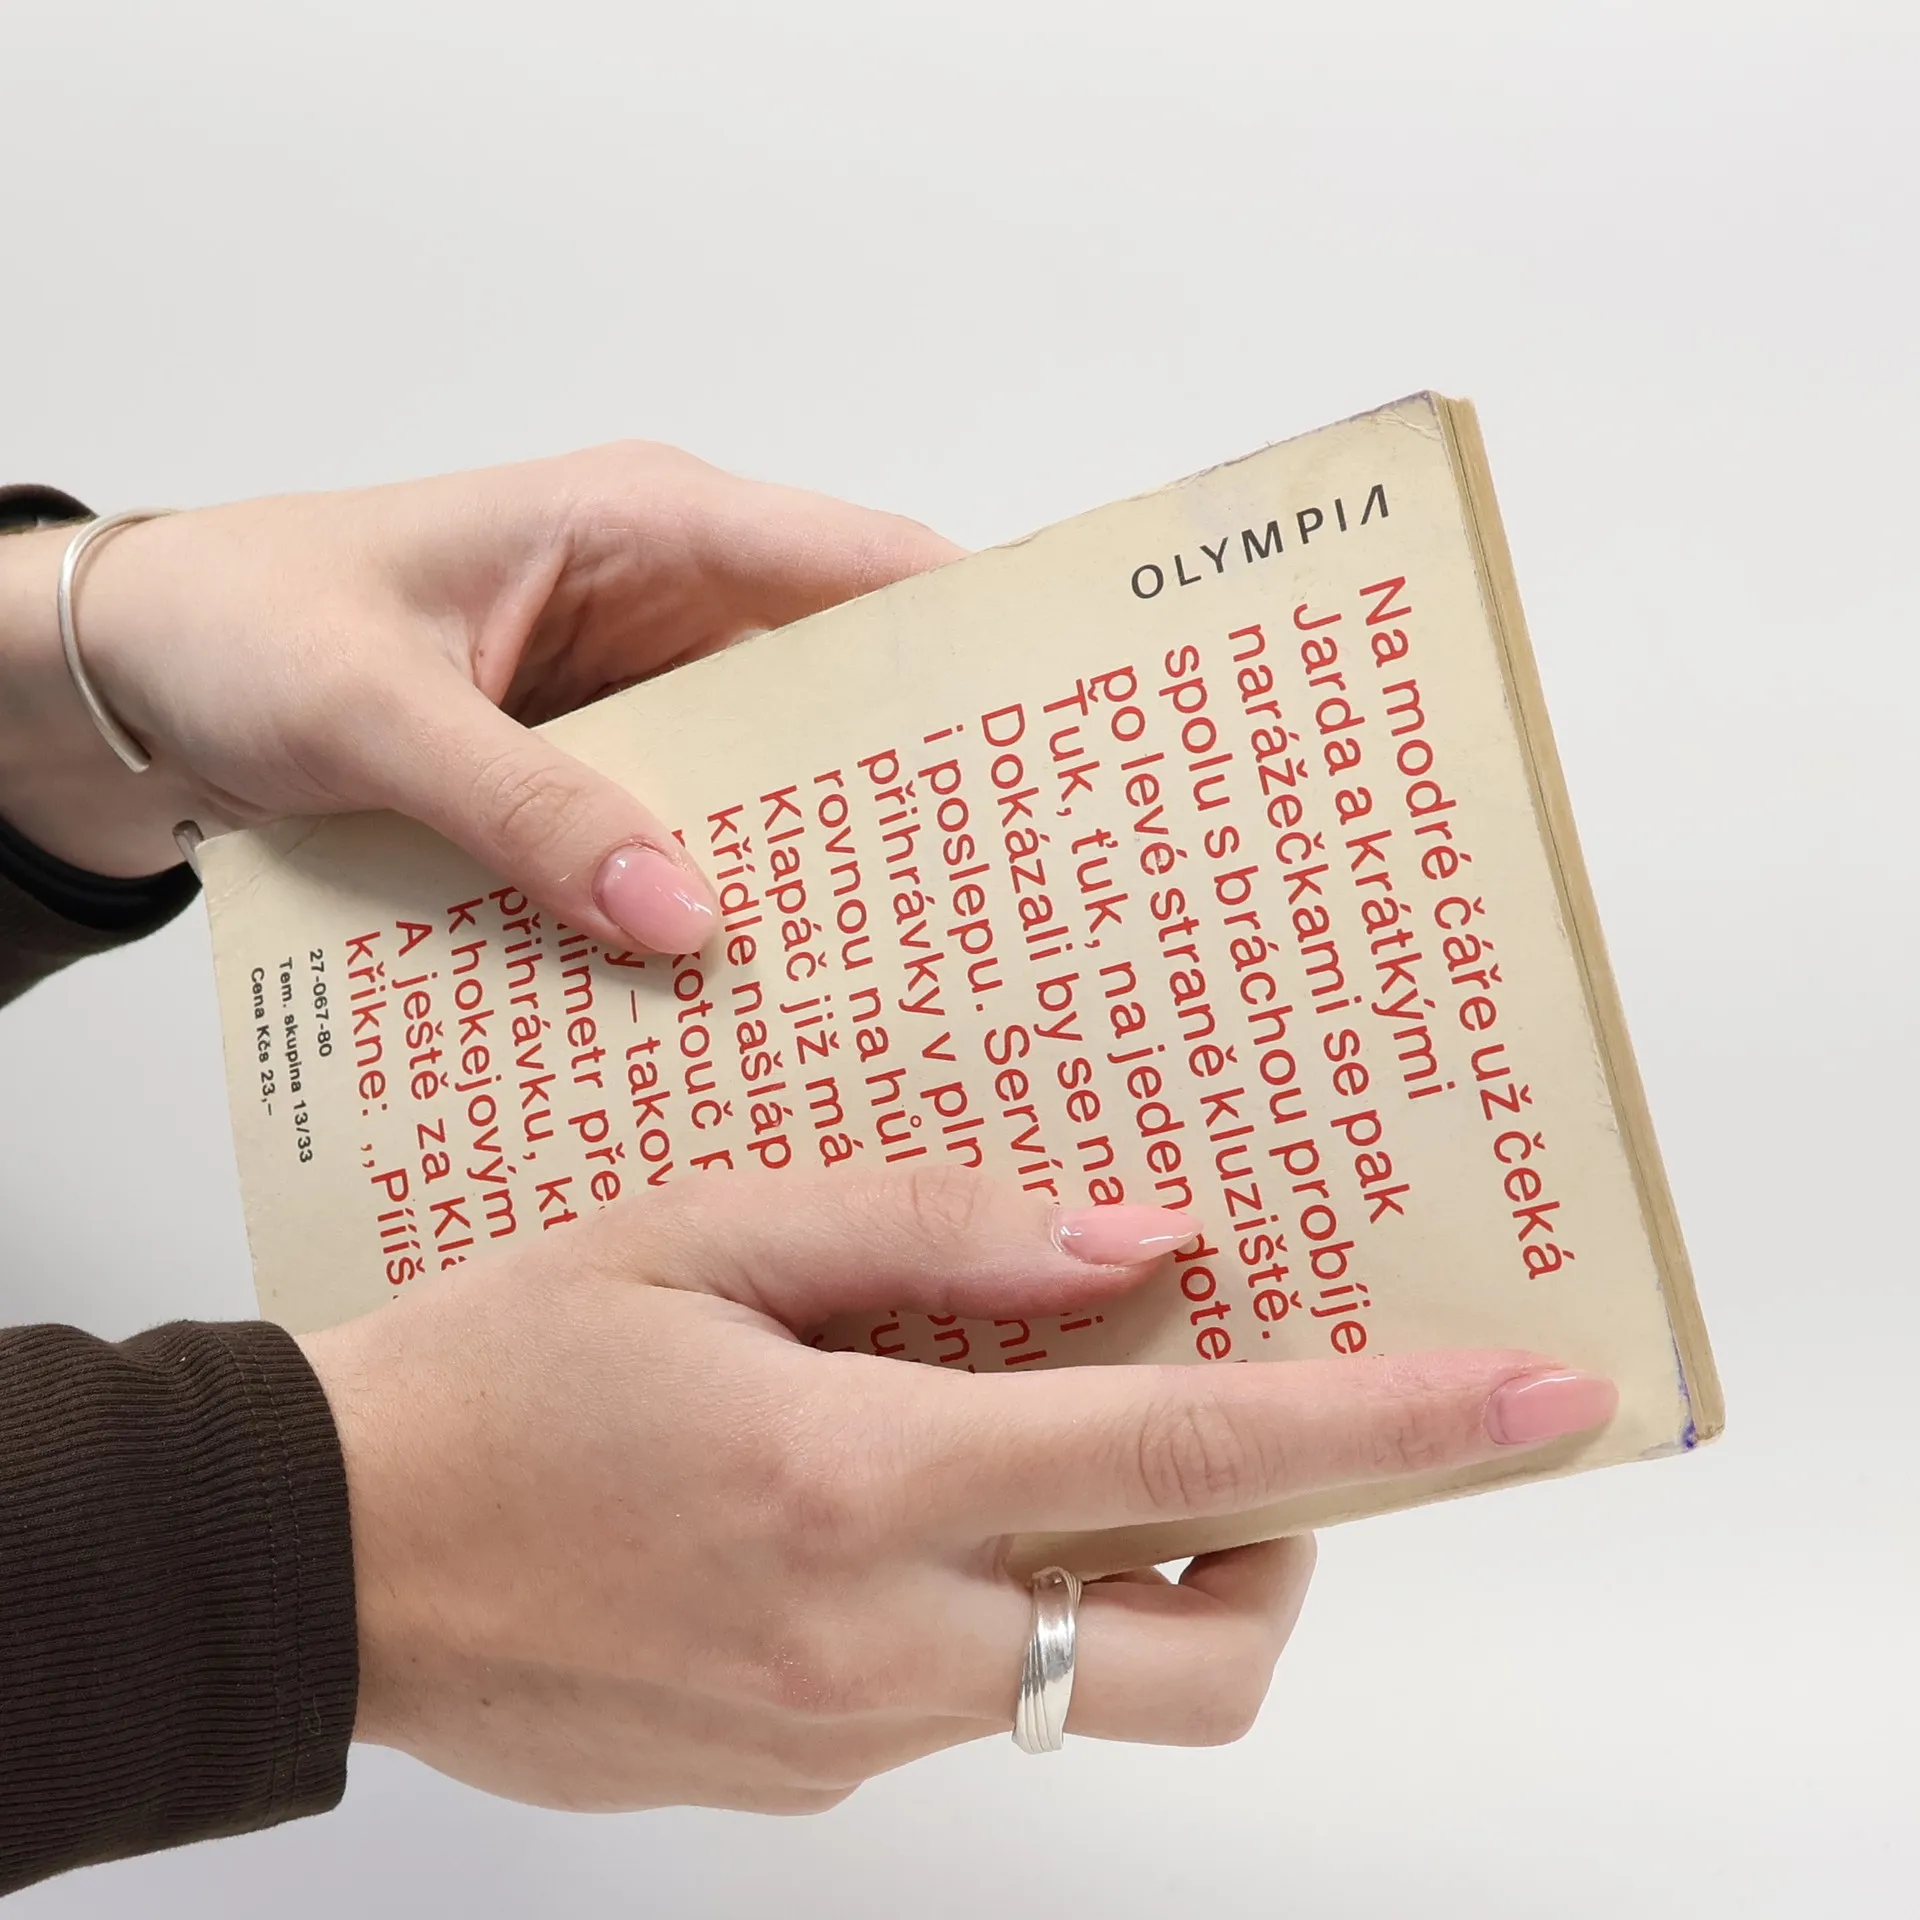 OLYMPIA
Na modré čáře už čeká
Jarda a krátkými
narážečkami se pak
spolu s bráchou probíje
po levé straně kluziště.
Ťuk, ťuk, na jeden dote
Dokázali by se na
i poslepu. Servír
přihrávky v pln
rovnou na hůl
Klapáč již má
křídle našláp
kotouč p
y — takov
limetr pře
přihrávku, kt
k hokejovým
A ještě za Kla
křikne: ,,Píííš
27-067-80
Tem. skupina 13/33
Cena Kčs 23,–